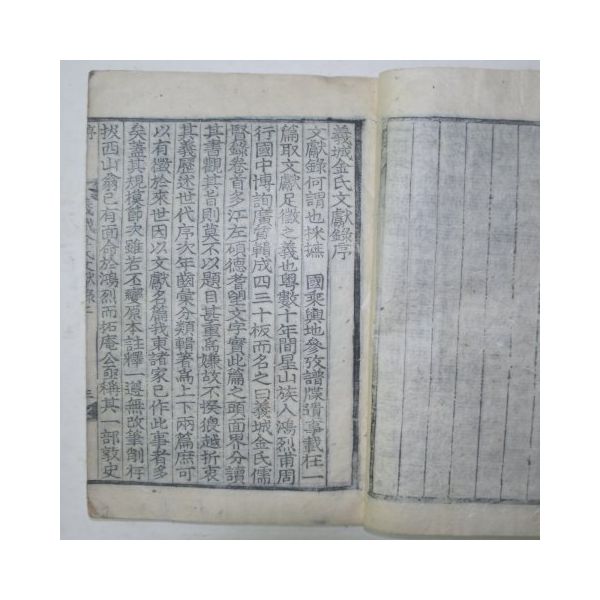 義城金氏文獻錄序
文獻錄何謂也採摭 國乘輿地參攷譜牒遺事載在一
篇取文獻足徵之義也粤數十年間星山族人鴻烈甫周
行國中博詢廣嘗輯成四三十板而名之曰義城金氏儒
賢錄卷首多江左碩德耆望文字實此篇之頭面界分讀
其書觀其旨則莫不以題目甚重爲嫌故不揆猥越折衷
其義歷述世代序次年齒彙分類輯著爲上下兩篇庶可
以有徵於來世因以文獻名篇我東諸家已作此事者多
矣蓋其規模節次雖若丕變原本註釋 遵無改筆削
拔西山翁已有面命於鴻烈而拓庵公亟稱其一部敦史
序 義城金氏文獻錄